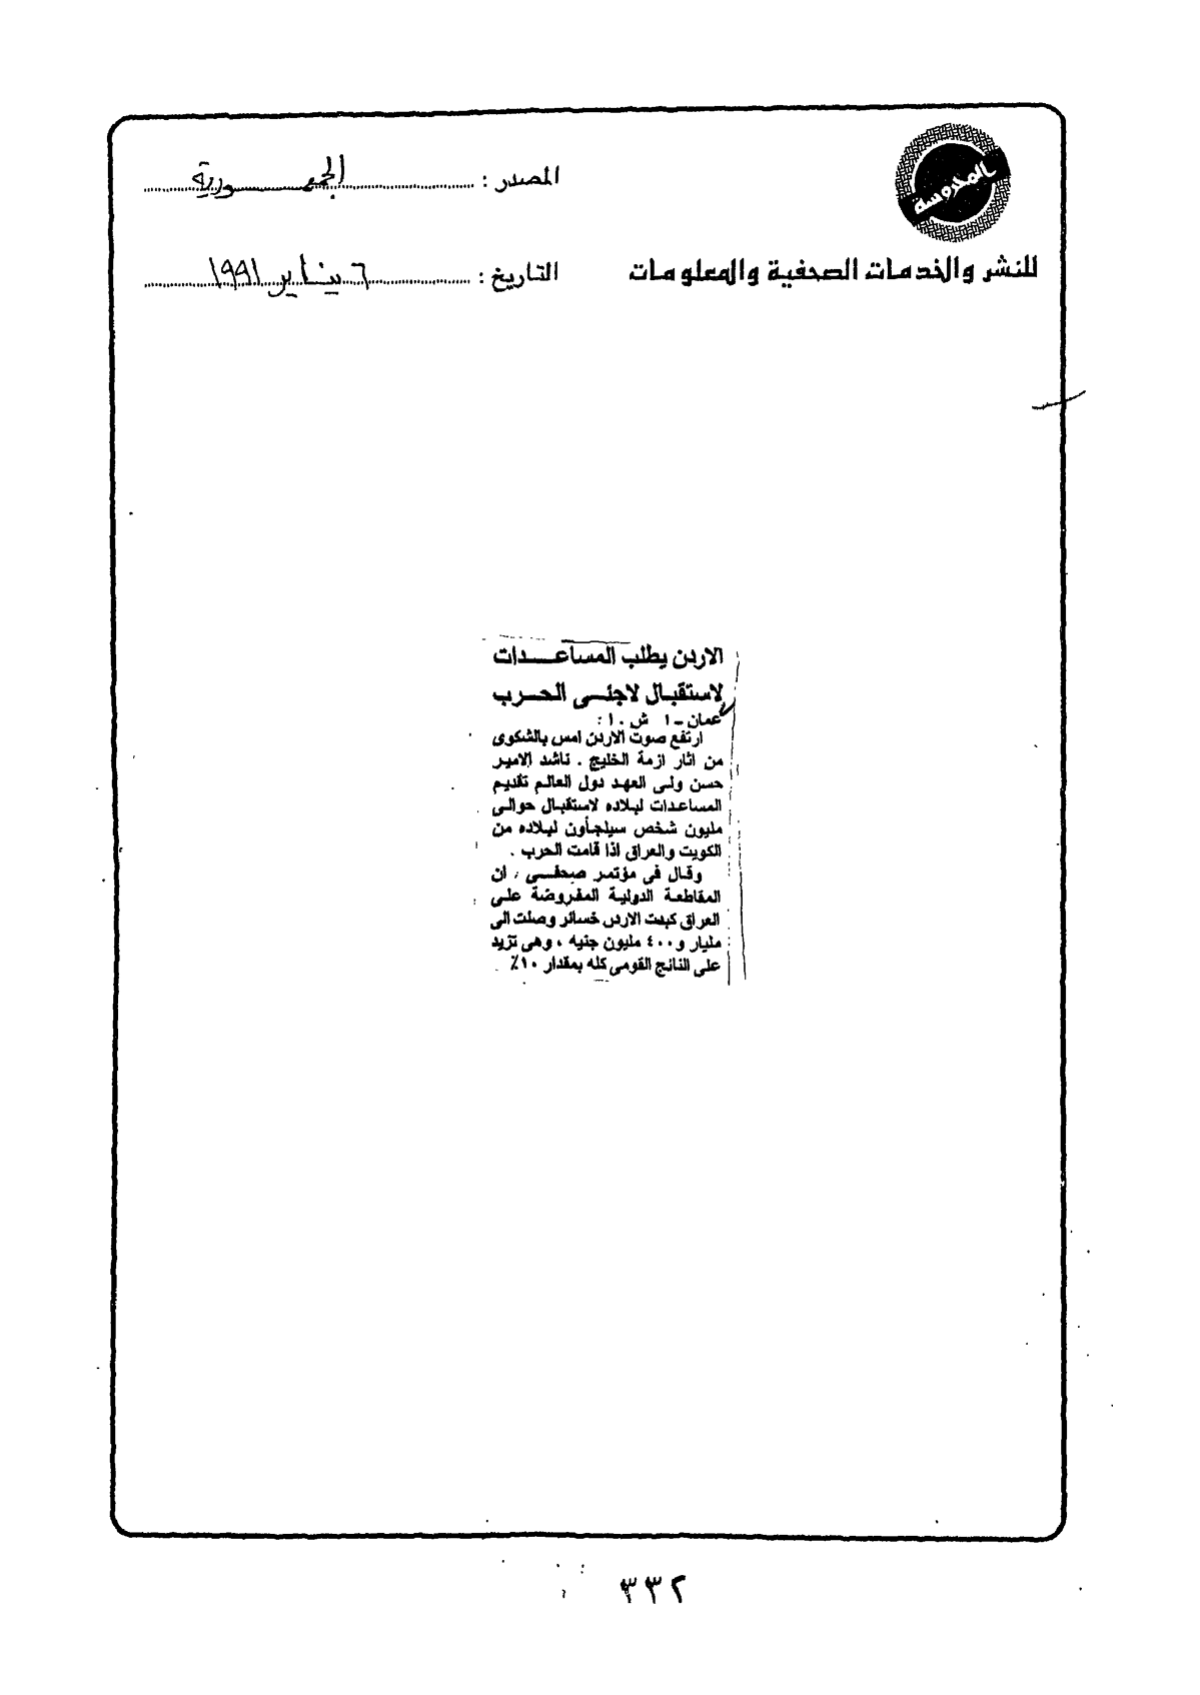 المحروسة
للنشر والخدمات الصحفية والمعلومات
المصدر : الجمهورية
التاريخ : ٦ يناير ١٩٩١
الاردن يطلب المساعدات
لاستقبال لاجئى الحرب
عمان - ا . ش . ا :
ارتفع صوت الاردن امس بالشكوى
من اثار ازمة الخليج . ناشد الامير
حسن ولى العهد دول العالم تقديم
المساعدات لبلاده لاستقبال حوالى
مليون شخص سيلجأون لبلاده من
الكويت والعراق اذا قامت الحرب .
وقال فى مؤتمر صحفى ، ان
المقاطعة الدولية المفروضة على
العراق كبدت الاردن خسائر وصلت الى
مليار و٤٠٠ مليون جنيه ، وهى تزيد
على الناتج القومى كله بمقدار ١٠٪ .
٣٣٢